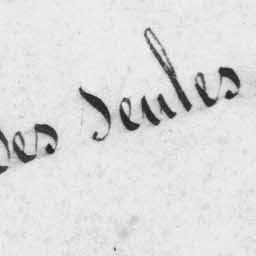 des seules